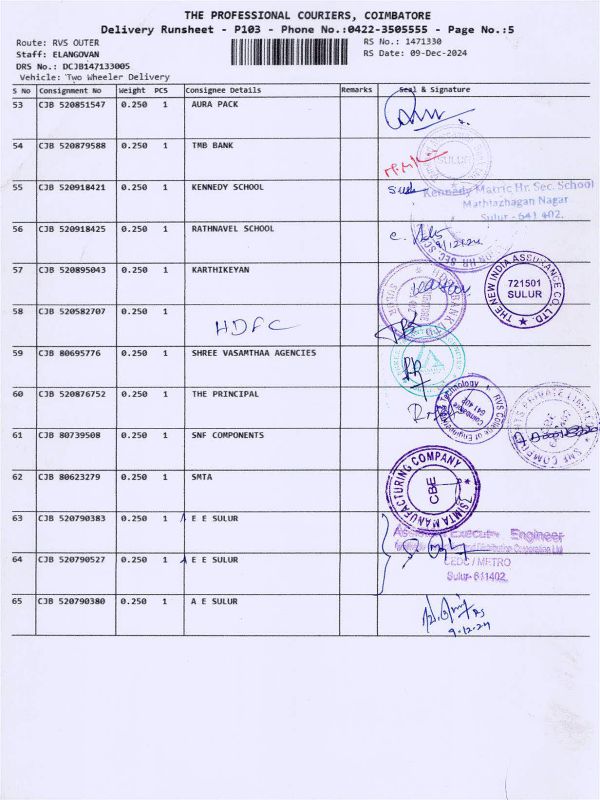 THE PROFESSIONAL COURIERS, COIMBATORE
Delivery Runsheet - P103 - Phone No.:0422-3505555 - Page No.:5
Route: RVS OUTER RS No.: 1471330
Staff: ELANGOVAN RS Date: 09-Dec-2024
DRS No.: DCJB147133005
Vehicle: Two Wheeler Delivery
S No Consignment No Weight PCS Consignee Details Remarks Seal & Signature
53 CJB 520851547 0.250 1 AURA PACK
54 CJB 520879588 0.250 1 TMB BANK
SULUR
55 CJB 520918421 0.250 1 KENNEDY SCHOOL
Kennedy Matric Hr. Sec. School
Mathiazhagan Nagar
Sulur - 641 402.
56 CJB 520918425 0.250 1 RATHNAVEL SCHOOL
57 CJB 520895043 0.250 1 KARTHIKEYAN
THE NEW INDIA ASSURANCE CO. LTD.
721501
SULUR
58 CJB 520582707 0.250 1 HDFC
59 CJB 80695776 0.250 1 SHREE VASAMTHAA AGENCIES
60 CJB 520876752 0.250 1 THE PRINCIPAL
RVS College of Engineering Technology
Coimbatore
641 402
61 CJB 80739508 0.250 1 SNF COMPONENTS
62 CJB 80623279 0.250 1 SMTA
MANUFACTURING COMPANY
CBE
63 CJB 520790383 0.250 1 E E SULUR
Executive Engineer
64 CJB 520790527 0.250 1 E E SULUR
CEDC / METRO
Sulur- 641402.
65 CJB 520790380 0.250 1 A E SULUR
9.12.24